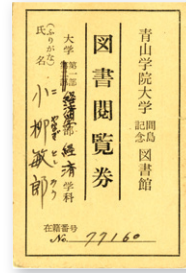 青山学院大学 間島記念 図書館
図書閲覧券
大学 第一部 経済学部 経済学科
(ふりがな)
氏名 小柳敏郎
在籍番号
No. 77160